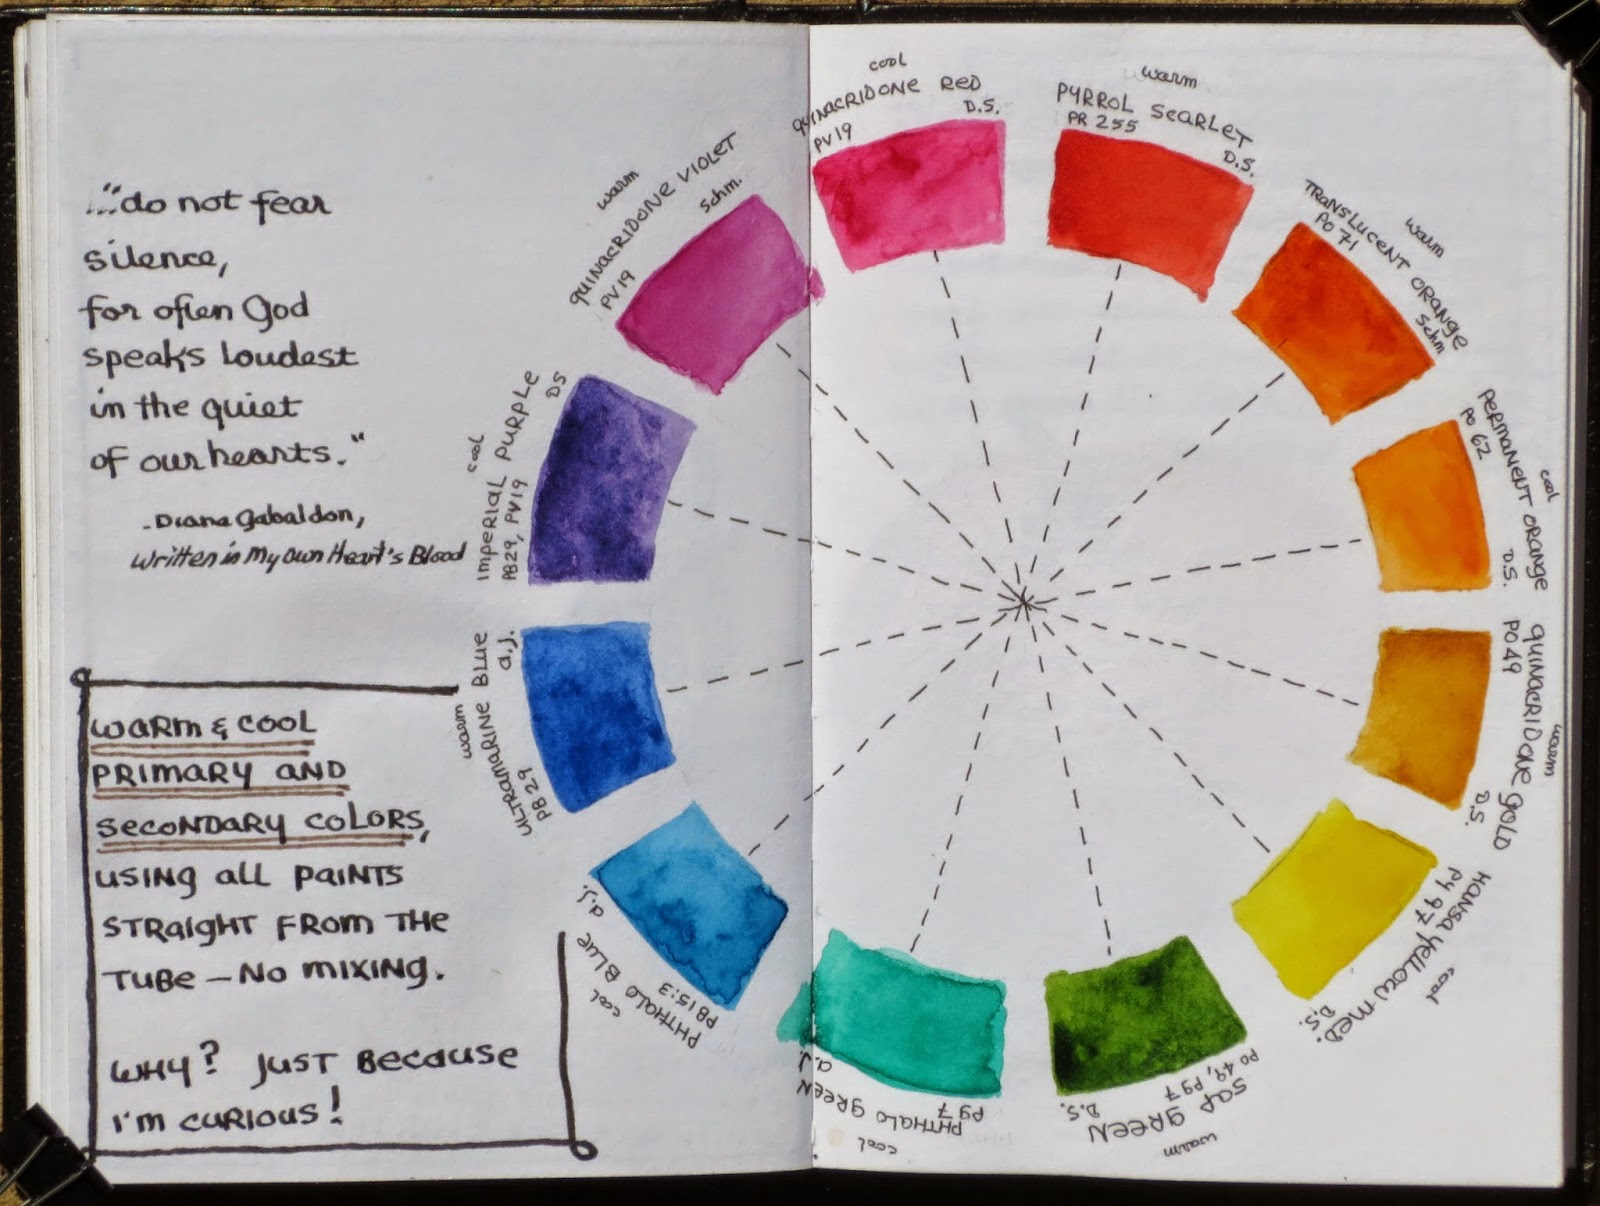 "...do not fear
silence,
for often God
speaks loudest
in the quiet
of our hearts."
- Diana Gabaldon,
Written in My Own Heart's Blood
WARM & COOL
PRIMARY AND
SECONDARY COLORS,
USING ALL PAINTS
STRAIGHT FROM THE
TUBE - NO MIXING.
WHY? JUST BECAUSE
I'M CURIOUS!
cool
QUINACRIDONE RED
PV19
D.S.
warm
PYRROL SCARLET
PR 255
D.S.
warm
TRANSLUCENT ORANGE
PO 71
Schm
cool
PERMANENT ORANGE
PO 62
D.S.
warm
QUINACRIDONE GOLD
PO49
D.S.
cool
HANSA YELLOW MED.
PY 97
D.S.
warm
SAP GREEN
PO 49, PG7
D.S.
cool
PHTHALO GREEN
PG7
a.J.
cool
PHTHALO BLUE
PB15:3
a.J.
warm
ULTRAMARINE BLUE
PB29
a.J.
cool
IMPERIAL PURPLE
PB29, PV19
DS
warm
QUINACRIDONE VIOLET
PV19
Schm.